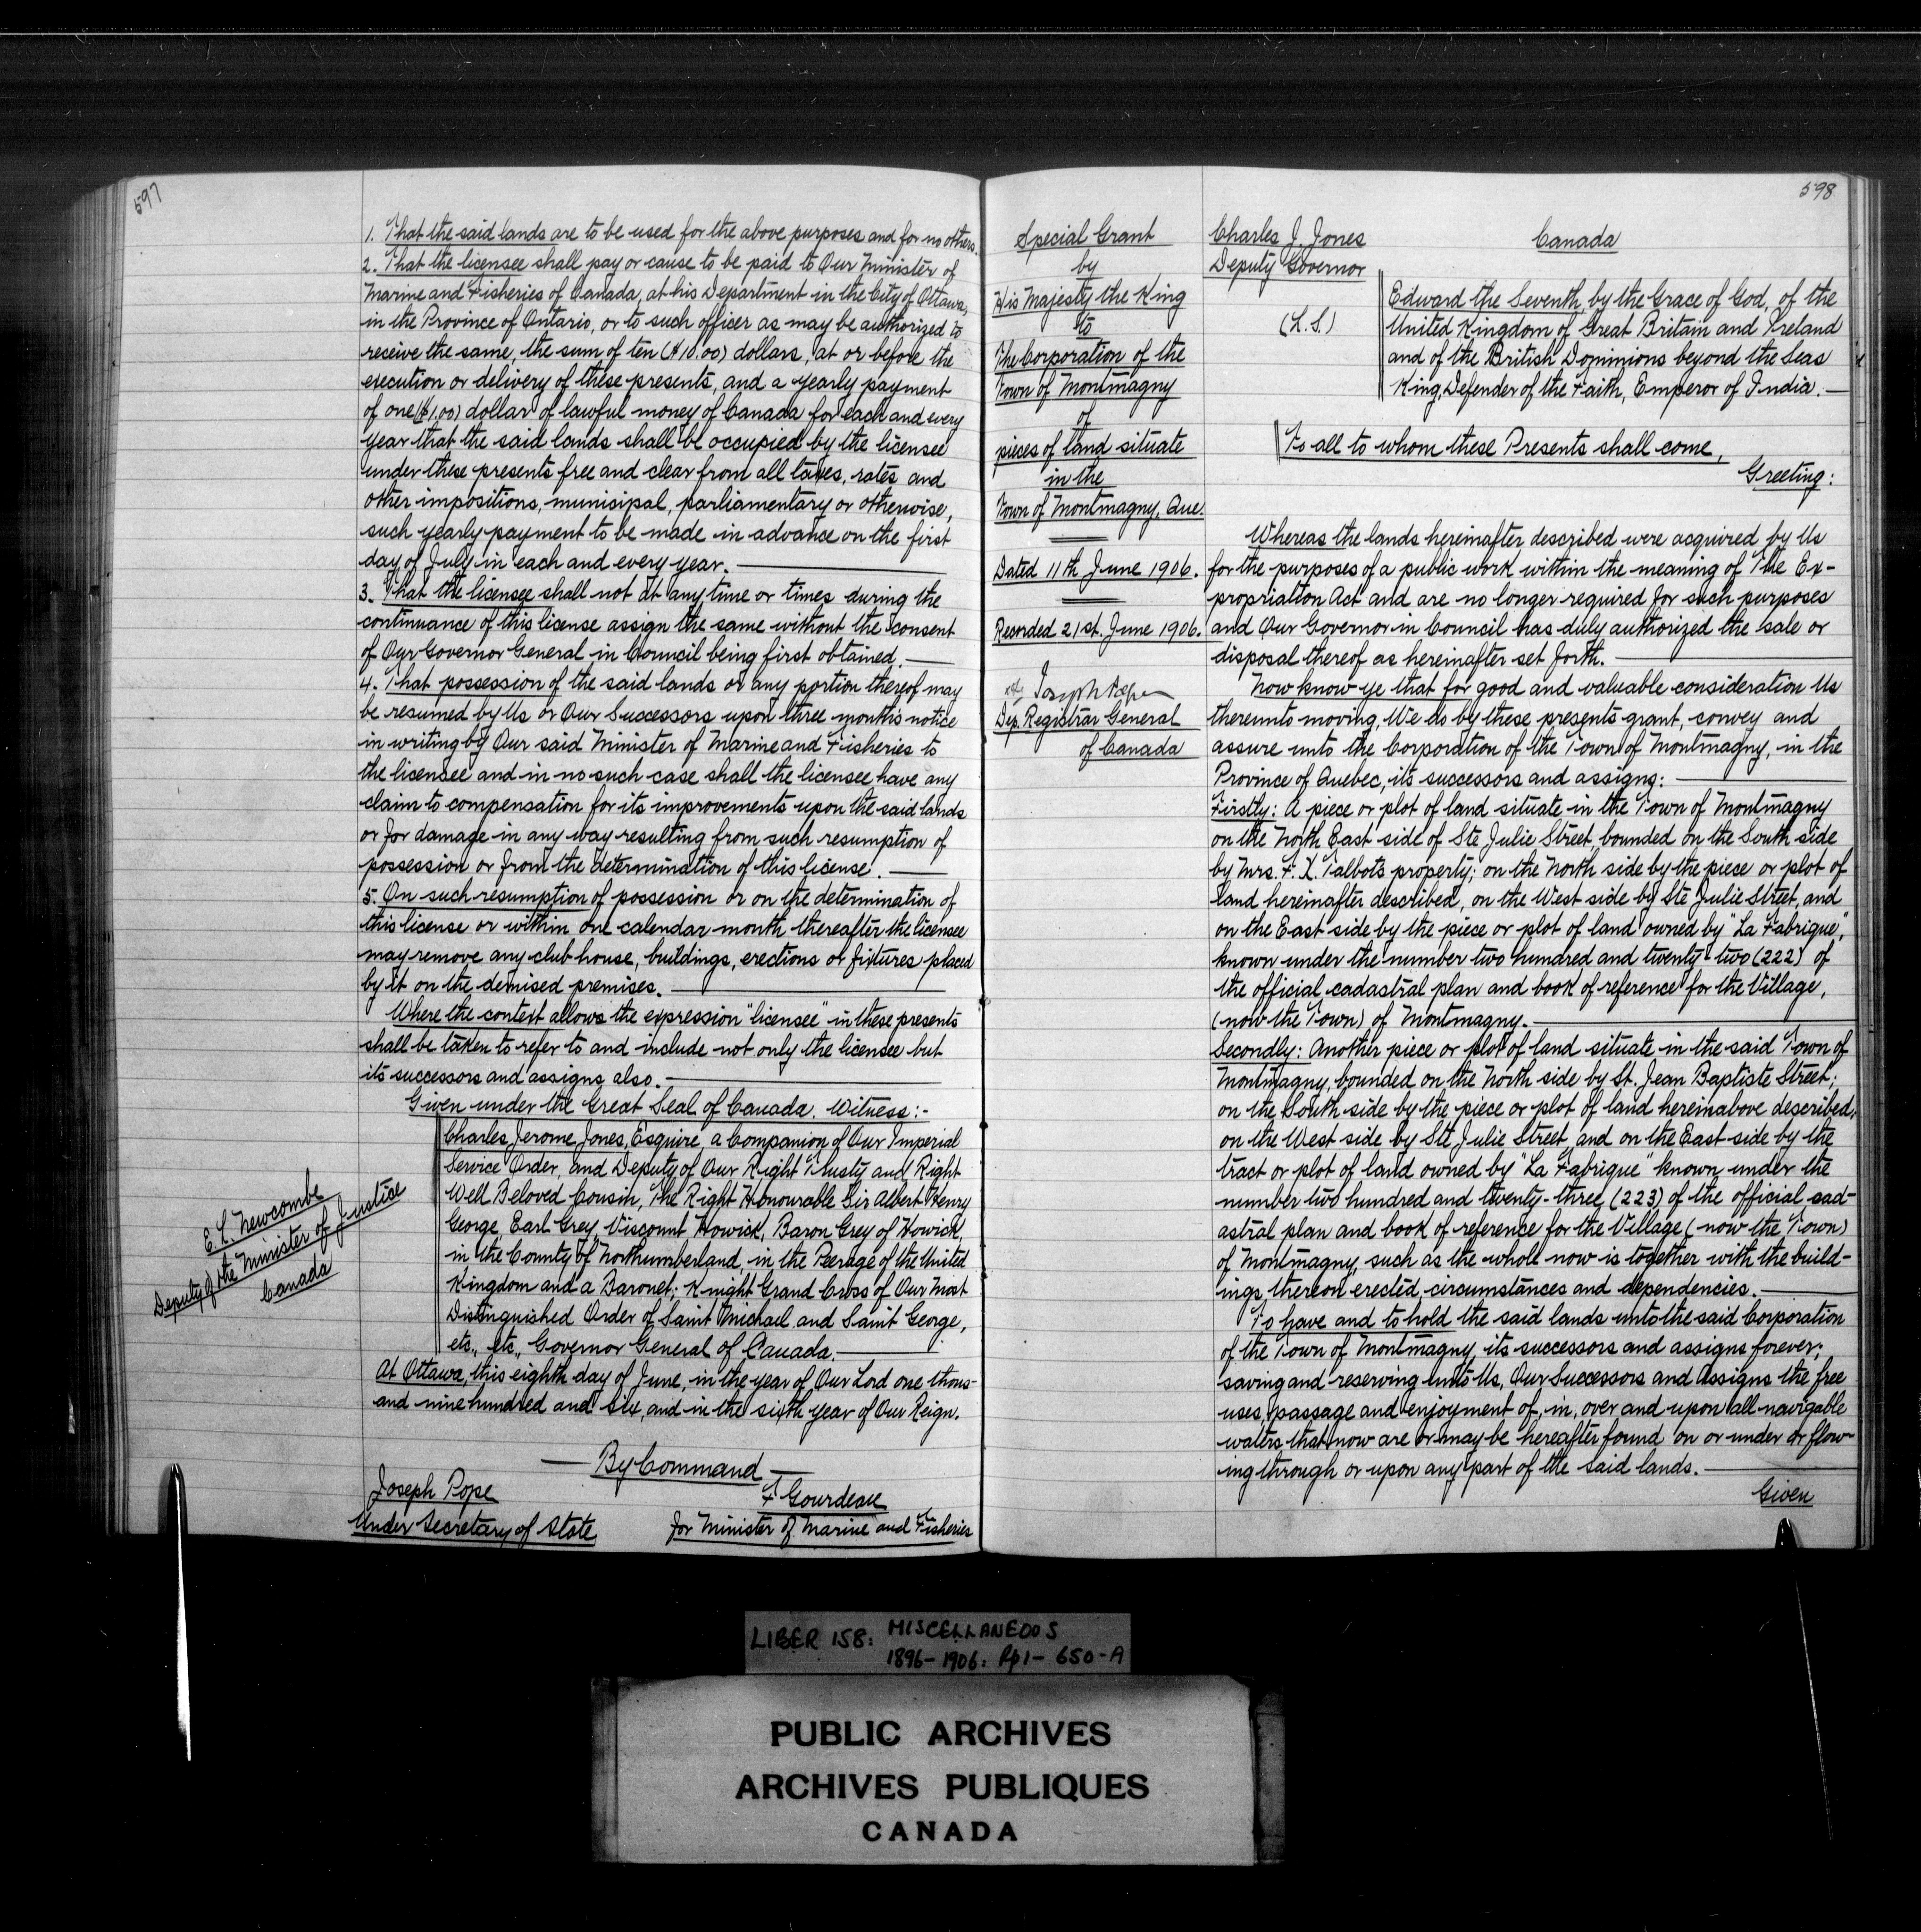 597
1. That the said lands are to be used for the above purposes and for no others.
2. That the licensee shall pay or cause to be paid to Our Minister of
Marine and Fisheries of Canada, at his Department in the City of Ottawa,
in the Province of Ontario, or to such officer as may be authorized to
receive the same, the sum of ten ($10.00) dollars, at or before the
execution or delivery of these presents, and a yearly payment
of one ($1.00) dollar of lawful money of Canada for each and every
year that the said lands shall be occupied by the licensee
under these presents free and clear from all taxes, rates and
other impositions, municipal, parliamentary or otherwise,
such yearly payment to be made in advance on the first
day of July in each and every year.
3. That the licensee shall not at any time or times during the
continuance of this license assign the same without the consent
of Our Governor General in Council being first obtained.
4. That possession of the said lands or any portion thereof may
be resumed by Us or Our Successors upon three months notice
in writing by Our said Minister of Marine and Fisheries to
the licensee and in no such case shall the licensee have any
claim to compensation for its improvements upon the said lands
or for damage in any way resulting from such resumption of
possession or from the determination of this license.
5. On such resumption of possession or on the determination of
this license or within one calendar month thereafter the licensee
may remove any club house, buildings, erections or fixtures placed
by it on the demised premises.
Where the context allows the expression "licensee" in these presents
shall be taken to refer to and include not only the licensee but
its successors and assigns also.
Given under the Great Seal of Canada. Witness:-
Charles Jerome Jones, Esquire, a Companion of Our Imperial
Service Order, and Deputy of Our Right Trusty and Right
Well Beloved Cousin, The Right Honourable Sir Albert Henry
George, Earl Grey, Viscount Howick, Baron Grey of Howick,
in the County of Northumberland, in the Peerage of the United
Kingdom and a Baronet; Knight Grand Cross of Our Most
Distinguished Order of Saint Michael and Saint George,
etc., etc., Governor General of Canada.
E. L. Newcombe
Deputy of the Minister of Justice
Canada
At Ottawa, this eighth day of June, in the year of Our Lord one thous-
and nine hundred and six, and in the sixth year of Our Reign.
By Command
Joseph Pope
Under Secretary of State
F Gourdeau
for Minister of Marine and Fisheries
598
Special Grant
by
His Majesty the King
to
The Corporation of the
Town of Montmagny
of
pieces of land situate
in the
Town of Montmagny, Que.
Dated 11th June 1906.
Recorded 21st. June 1906.
Joseph Pope
Dep. Registrar General
of Canada
Charles J. Jones
Deputy Governor
Canada
(L.S.)
Edward the Seventh, by the Grace of God, of the
United Kingdom of Great Britain and Ireland
and of the British Dominions beyond the Seas
King, Defender of the Faith, Emperor of India.
To all to whom these Presents shall come,
Greeting:
Whereas the lands hereinafter described were acquired by Us
for the purposes of a public work within the meaning of The Ex-
propriation Act and are no longer required for such purposes
and Our Governor in Council has duly authorized the sale or
disposal thereof as hereinafter set forth.
Now know ye that for good and valuable consideration Us
thereunto moving, We do by these presents grant, convey and
assure unto the Corporation of the Town of Montmagny, in the
Province of Quebec, its successors and assigns:
Firstly: A piece or plot of land situate in the Town of Montmagny
on the North East side of Ste Julie Street, bounded on the South side
by Mrs. F. X. Talbot's property; on the North side by the piece or plot of
land hereinafter described, on the West side by Ste Julie Street, and
on the East side by the piece or plot of land owned by "La Fabrique",
known under the number two hundred and twenty-two (222) of
the official cadastral plan and book of reference for the Village,
(now the Town) of Montmagny.
Secondly: Another piece or plot of land situate in the said Town of
Montmagny, bounded on the North side by St. Jean Baptiste Street;
on the South side by the piece or plot of land hereinabove described,
on the West side by Ste Julie Street, and on the East side by the
tract or plot of land owned by "La Fabrique" known under the
number two hundred and twenty-three (223) of the official cad-
astral plan and book of reference for the Village (now the Town)
of Montmagny, such as the whole now is together with the build-
ings thereon erected, circumstances and dependencies.
To have and to hold the said lands unto the said Corporation
of the Town of Montmagny, its successors and assigns forever;
saving and reserving unto Us, Our Successors and Assigns the free
uses, passage and enjoyment of, in, over and upon all navigable
waters that now are or may be hereafter found on or under or flow-
ing through or upon any part of the said lands.
Given
LIBER 158: MISCELLANEOUS
1896-1906: Pp1- 650-A
PUBLIC ARCHIVES
ARCHIVES PUBLIQUES
CANADA